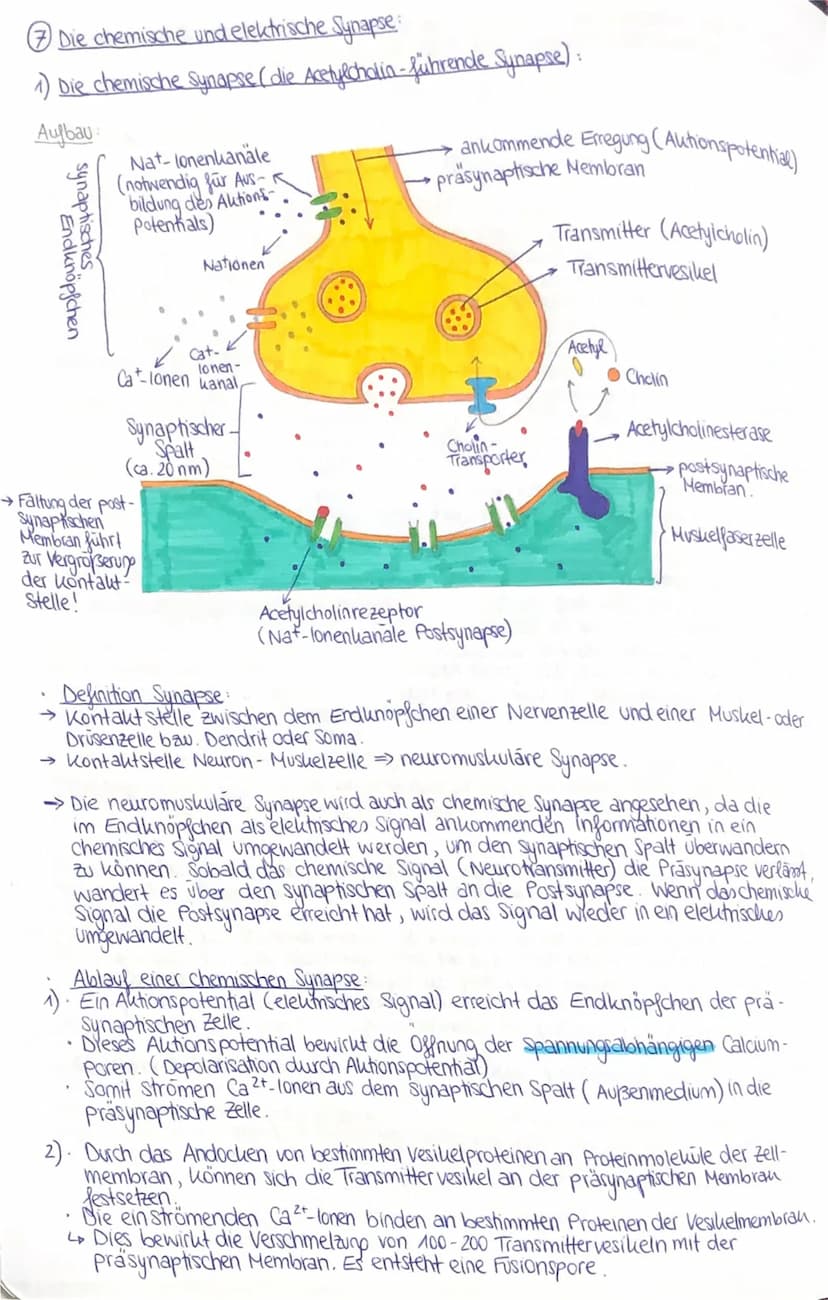 ⑦ Die chemische und elektrische Synapse:
1) Die chemische Synapse (die Acetylcholin-führende Synapse):
Aufbau:
synaptisches
Endknöpfchen
Na⁺-Ionenkanäle
(notwendig für Aus-
bildung des Aktions-
potentials)
Nationen
ankommende Erregung (Aktionspotential)
präsynaptische Membran
Transmitter (Acetylcholin)
Transmittervesikel
Ca⁺-Ionen
Cat-
Ionen-
kanal
Acetyl
Cholin
Synaptischer
Spalt
(ca. 20nm)
Cholin-
Transporter
Acetylcholinesterase
postsynaptische
Membran.
Muskelfaserzelle
→ Faltung der post-
synaptischen
Membran führt
zur Vergrößerung
der Kontakt-
stelle!
Acetylcholinrezeptor
(Na⁺-Ionenkanäle Postsynapse)
· Definition Synapse:
→ Kontaktstelle zwischen dem Endknöpfchen einer Nervenzelle und einer Muskel- oder
Drüsenzelle bzw. Dendrit oder Soma.
→ Kontaktstelle Neuron - Muskelzelle => neuromuskuläre Synapse.
→ Die neuromuskuläre Synapse wird auch als chemische Synapse angesehen, da die
im Endknöpfchen als elektrisches Signal ankommenden Informationen in ein
chemisches Signal umgewandelt werden, um den synaptischen Spalt überwandern
zu können. Sobald das chemische Signal (Neurotransmitter) die Präsynapse verlässt,
wandert es über den synaptischen Spalt an die Postsynapse. Wenn das chemische
Signal die Postsynapse erreicht hat, wird das Signal wieder in ein elektrisches
umgewandelt.
· Ablauf einer chemischen Synapse:
1) · Ein Aktionspotential (elektrisches Signal) erreicht das Endknöpfchen der prä-
synaptischen Zelle.
· Dieses Aktionspotential bewirkt die Öffnung der spannungsabhängigen Calcium-
poren. (Depolarisation durch Aktionspotential)
· Somit strömen Ca²⁺-Ionen aus dem synaptischen Spalt (Außenmedium) in die
präsynaptische Zelle.
2) · Durch das Andocken von bestimmten Vesikelproteinen an Proteinmoleküle der Zell-
membran, können sich die Transmittervesikel an der präsynaptischen Membran
festsetzen.
· Die einströmenden Ca²⁺-Ionen binden an bestimmten Proteinen der Vesikelmembran.
↳ Dies bewirkt die Verschmelzung von 100-200 Transmittervesikeln mit der
präsynaptischen Membran. Es entsteht eine Fusionspore.